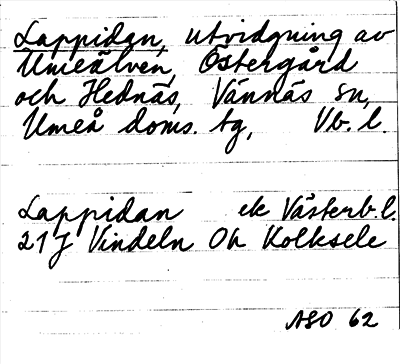 Lappidan, utvidgning av
Umeälven, Östergård
och Hednäs, Vännäs sn,
Umeå doms. tg, Vb. l.
Lappidan ek Västerb.l.
21J Vindeln Oh Kolksele
ASO 62